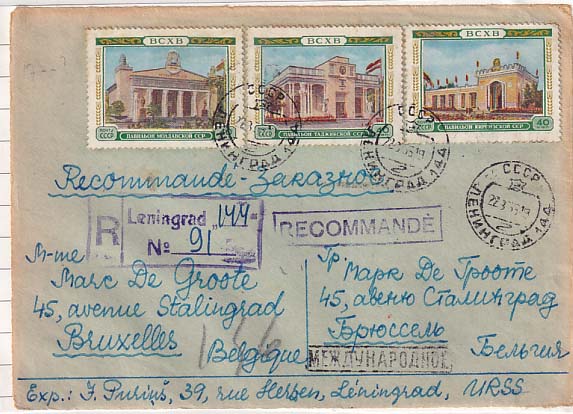 ВСХВ
ПАВИЛЬОН МОЛДАВСКОЙ ССР
ВСХВ
ПАВИЛЬОН ТАДЖИКСКОЙ ССР
ВСХВ
ПАВИЛЬОН КИРГИЗСКОЙ ССР
40
СССР
ЛЕНИНГРАД 144
СССР
ЛЕНИНГРАД 144
СССР
ЛЕНИНГРАД 144
Recommandé-Заказное
R
Leningrad "144"
№ 91
RECOMMANDÉ
M-me
Marc De Groote
45, avenue Stalingrad
Bruxelles
Belgique
Гр. Марк Де Грооте
45, авеню Сталинград
Брюссель
Бельгия
МЕЖДУНАРОДНОЕ
Exp.: J. Puriņš, 39, rue Herzen, Léningrad, URSS